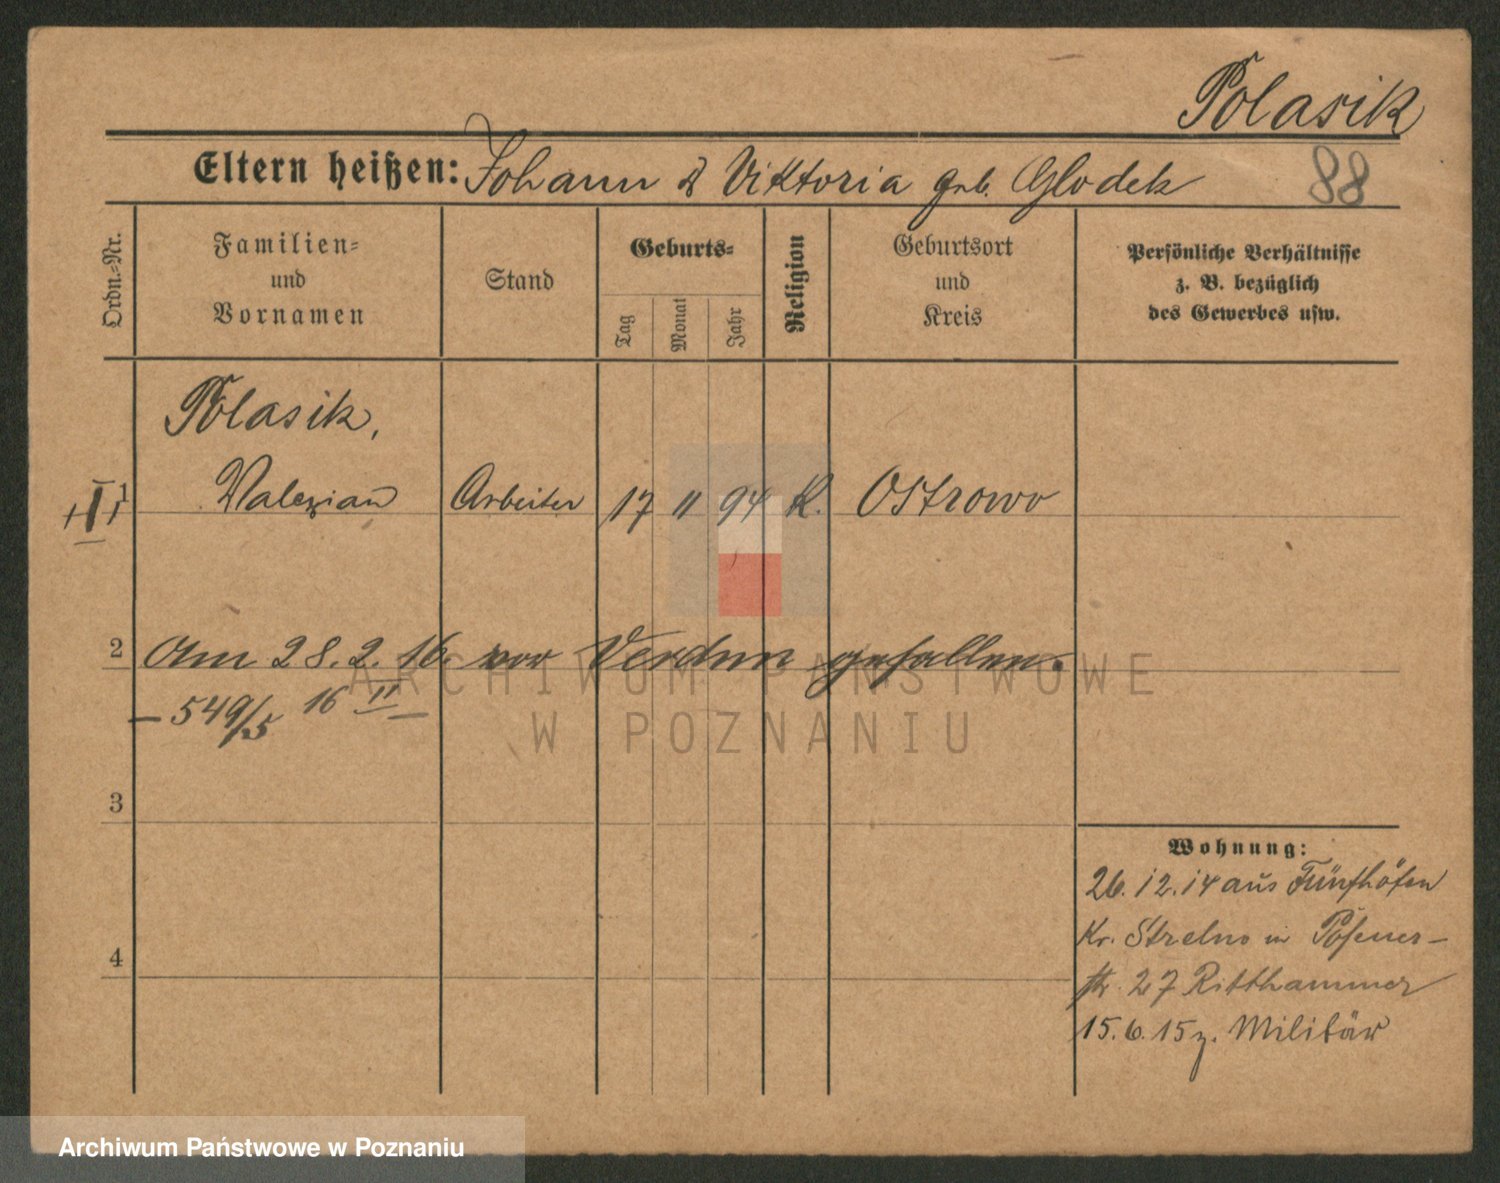 Polasik
Eltern heißen: Johann & Viktoria geb. Glodek
88
Ordn.-Nr.
Familien-
und
Vornamen
Stand
Geburts-
Tag
Monat
Jahr
Religion
Geburtsort
und
Kreis
Persönliche Verhältnisse
z. B. bezüglich
des Gewerbes usw.
Polasik,
1 Valerian Arbeiter 17 11 94 K. Ostrowo
2 Am 28.2.16. vor Verdun gefallen.
– 549/5 16 II –
3
4
Wohnung:
26.12.14 aus Fünfhöfen
Kr. Strelno in Posener-
str. 27 Ritthammer
15.6.15 z. Militär
ARCHIWUM PAŃSTWOWE
W POZNANIU
Archiwum Państwowe w Poznaniu